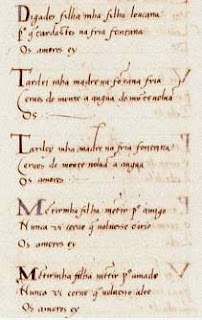 Digades filha mha filha louçana
p̃ q̃ tardastes na fria fontana
Os amores ey
Tardei mha madre na fontana fria
Cervos do monte a augua do
Os
Tardei mha madre na fria fontana
Cervos do monte volviã a augua
Os amores
Mentir mha filha mentir p̃ amigo
Nunca vi cervo q̃ volvesse o rio
Os amores ey
Mentir mha filha mentir p̃ amado
Nunca vi cervo q̃ volvesse alto
Os amores ey